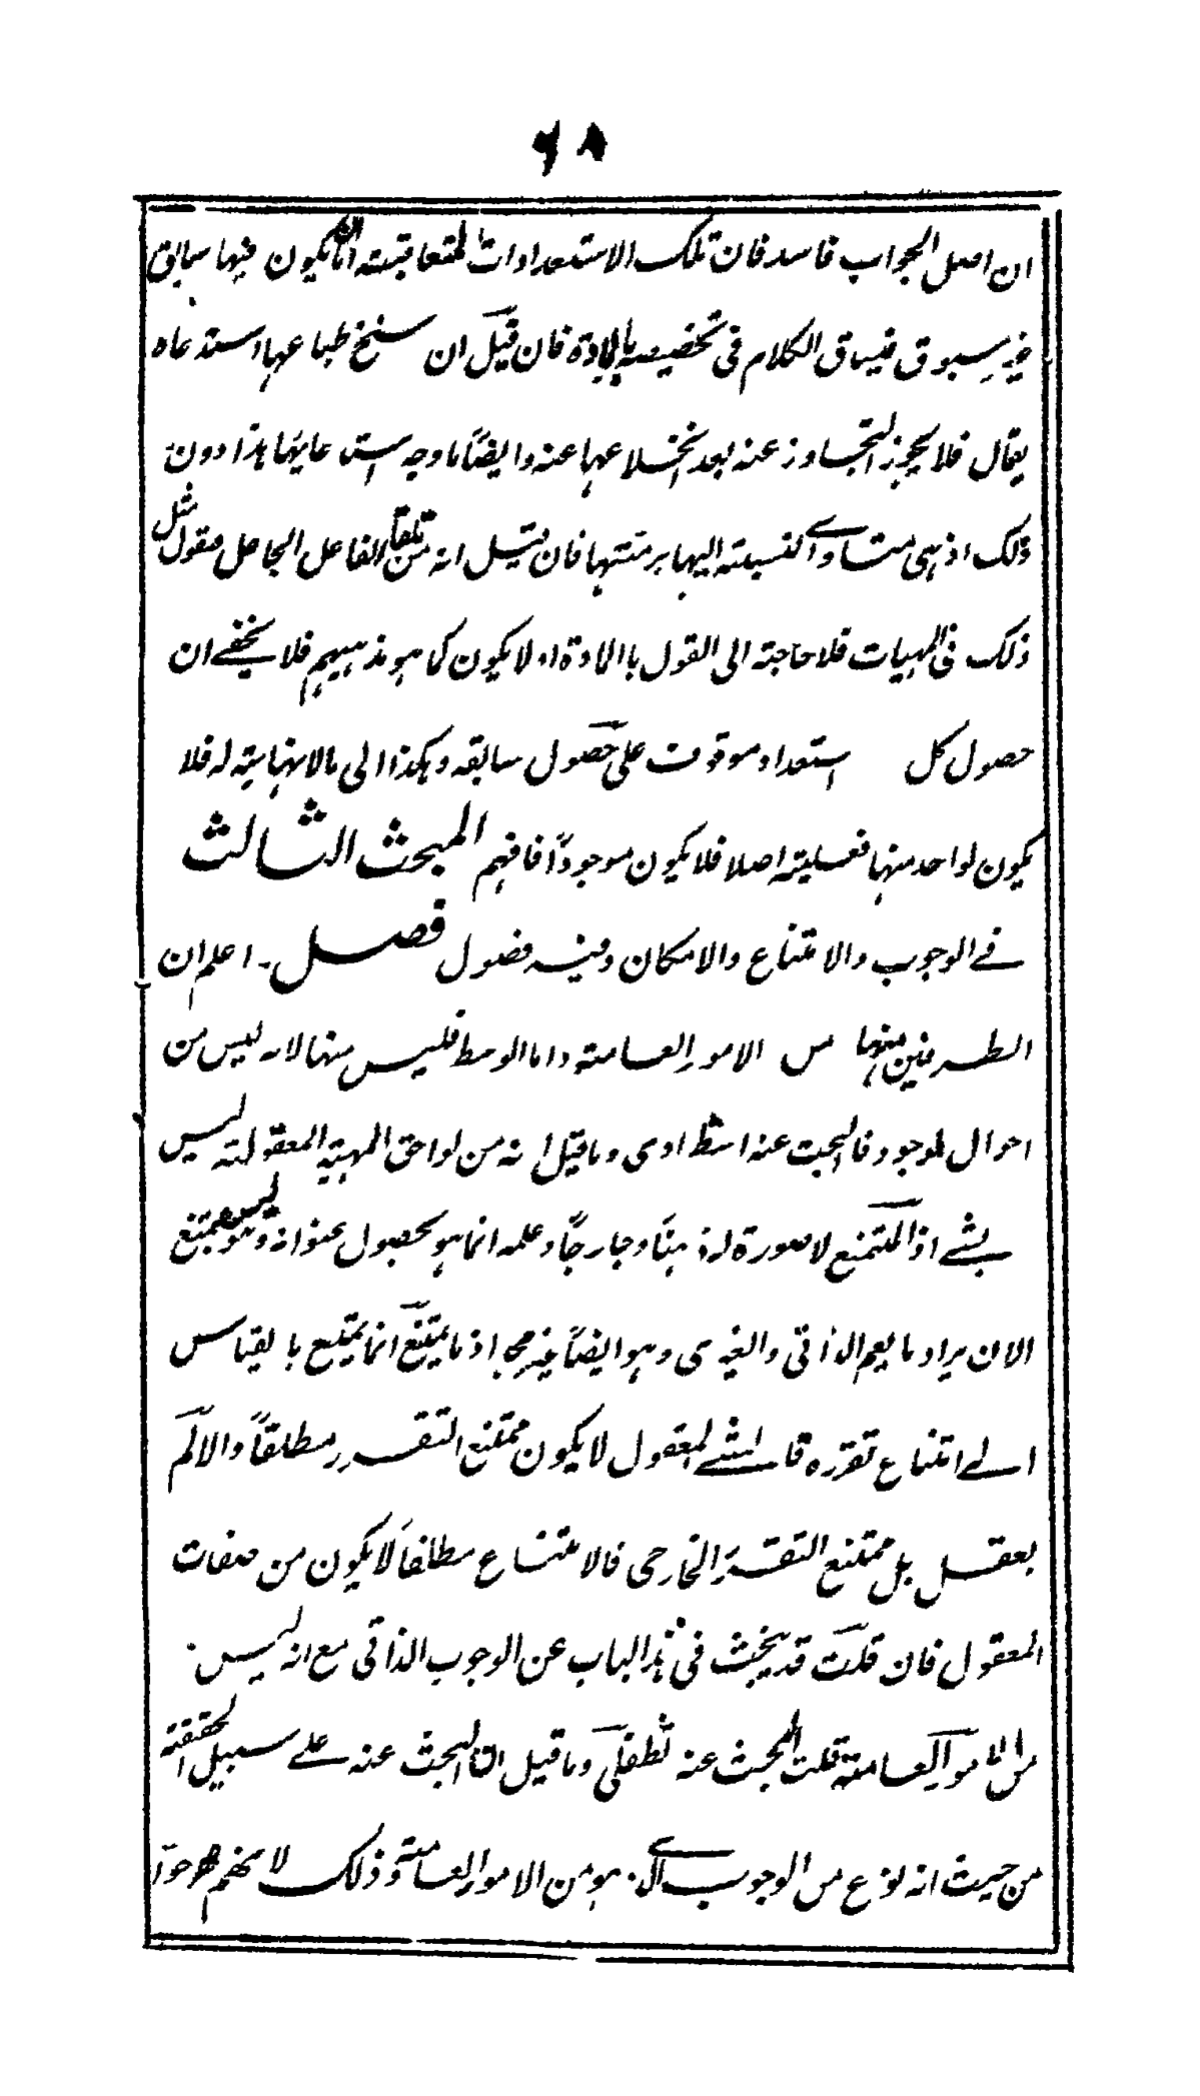 ٦٨
ان اصل الجواب فاسد فان تلك الاستعدادات المتعاقبة اما ان يكون فيها سابق
غير مسبوق فيساق الكلام فى تخصيصه بالمادة فان قيل ان سنخ طباعها استدعاه
يقال فلا يجوز التجاوز عنه بعد انخلاعها عنه وايضًا ما وجه استدعايها هذا دون
ذلك اذ هى متساوى النسبة اليها برمتها فان قيل انه من تلقاء الفاعل الجاعل فقول مثل
ذلك فى المهيات فلا حاجة الى القول باالمادة او لا يكون كما هو مذهبهم فلا يخفے ان
حصول كل استعداد موقوف على حصول سابقه وهكذا الى مالانهاية له فلا
يكون لواحد منها فعلية اصلا فلا يكون موجودًا فافهم المبحث الثالث
فے الوجوب والامتناع والامكان وفيه فصول فصل ۔ اعلم ان
الطرفين منها من الامور العامة واما الوسط فليس منها لانه ليس من
احوال الموجود فالبحث عنه استطرادى وما قيل انه من لواحق المهية المعقولة ليس
بشے اذ الممتنع لا صورة له ذهنًا وخارجًا وعلمه انما هو بحصول عنوانه وهو ليس بممتنع
الا ان يراد ما يعم الذاتى والغيرى وهو ايضًا غير مجد اذ ما يمتنع انما يمتنع بالقياس
الے امتناع تقرره فالشے المعقول لا يكون ممتنع التقرر مطلقًا والا لم
يعقل بل ممتنع التقرر الخارجى فالامتناع مطلقًا لا يكون من صفات
المعقول فان قلت قد يبحث فى هذا الباب عن الوجوب الذاتى مع انه ليس
من الامور العامة قلت البحث عنه تطفلى وما قيل ان البحث عنه علے سبيل الحقيقة
من حيث انه نوع من الوجوب الذى هو من الامور العامة وذلك لا